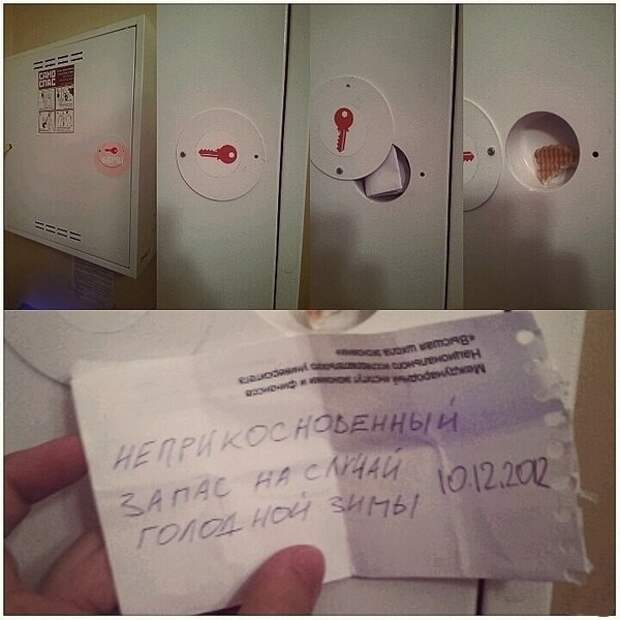 САМО
СПАС
НЕПРИКОСНОВЕННЫЙ
ЗАПАС НА СЛУЧАЙ
ГОЛОДНОЙ ЗИМЫ
10.12.2012
Международный институт экономики и финансов
Национального исследовательского университета
«Высшая школа экономики»